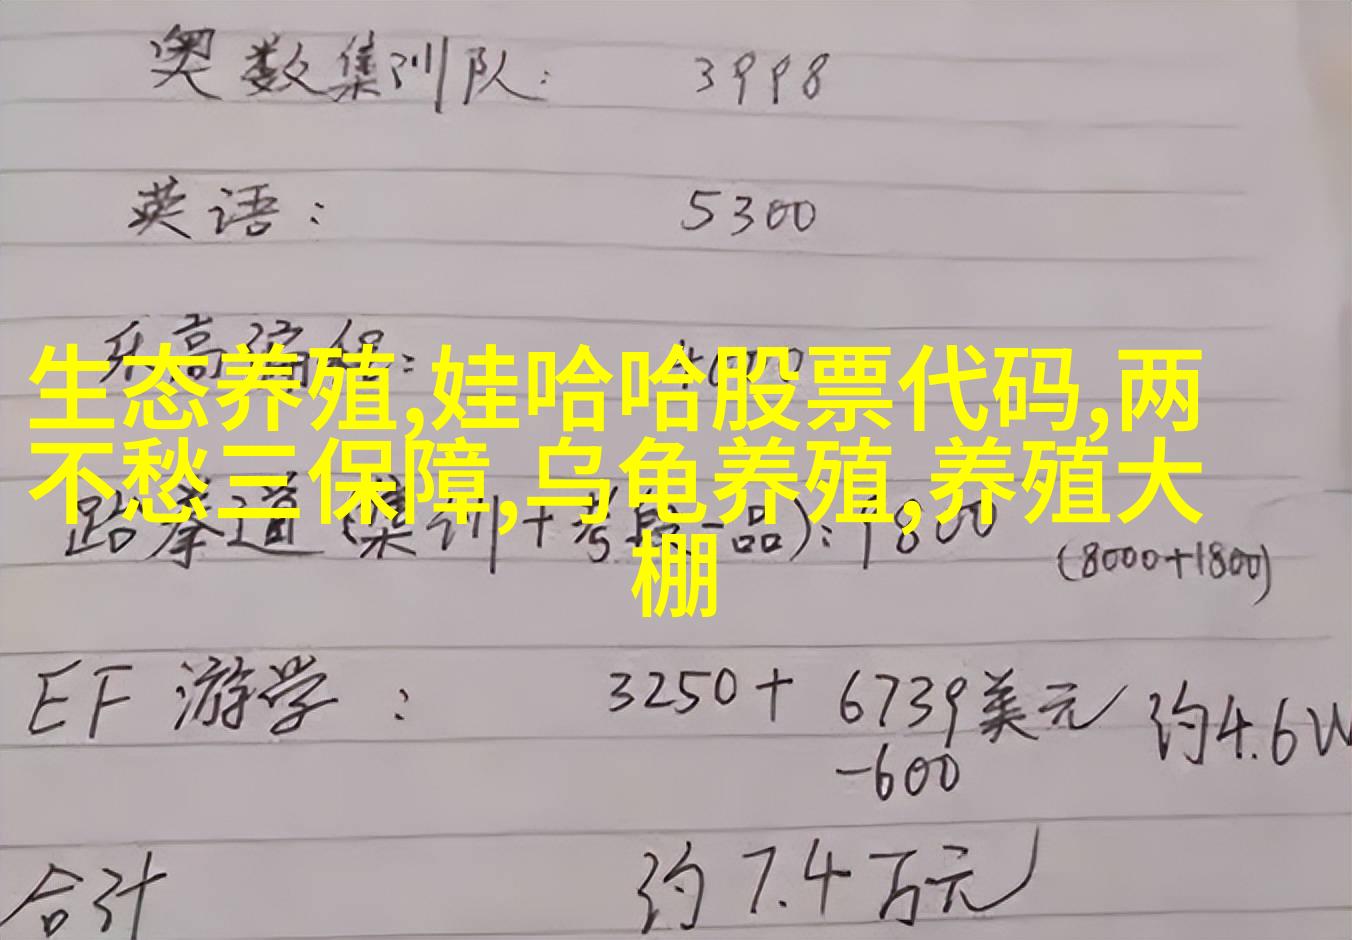 奥数集训队: 3998
英语: 5300
乐高编程: 4000
生态养殖,娃哈哈股票代码,两
不愁三保障,乌龟养殖,养殖大
棚
跆拳道(集训+考段一品): 9800
(8000+1800)
EF 游学: 3250+ 6739美元 约4.6W
-600
合计 约7.4万元